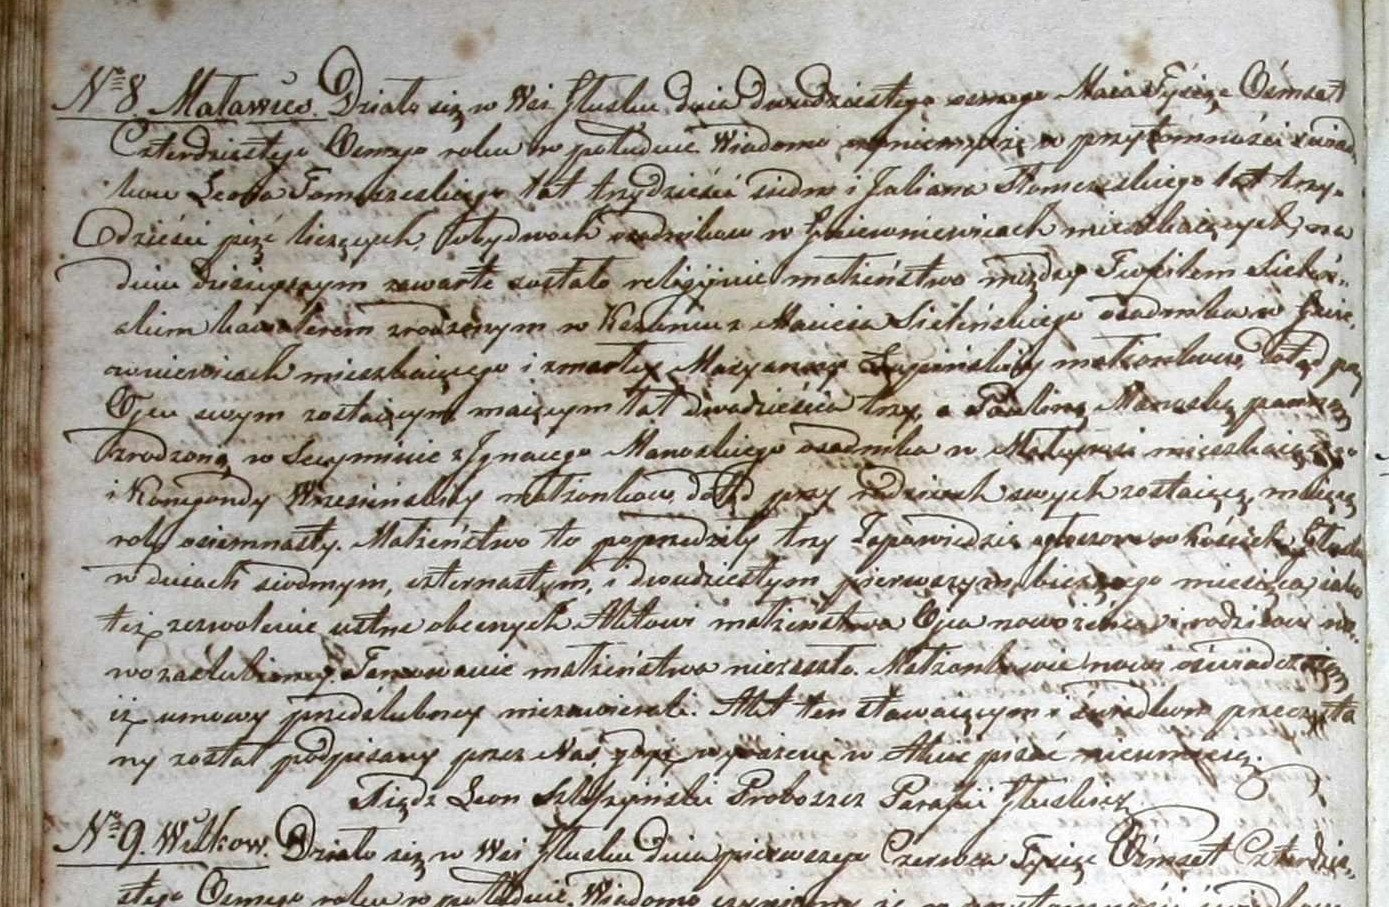 Nro 8 Maławieś. Działo się w Wsi Głusku dnia dwudziestego osmego Maia Tysiąc Ośmset
Czterdziestego Osmego roku w południe Wiadomo czyniemy iż w przytomności świad
kow Leona Tomaszeskiego lat trzydzieści siedm i Juliana Słomczeskiego lat trzy-
dzieści pięć liczących, obydwoch osadnikow w Gniewniewicach mieszkaiących, na
dniu dzisieyszym zawarte zostało religijnie małżeństwo między Teofilem Sieliń-
skiem kawalerem zrodzonym w z Macieia Sielińskiego osadnika w Gnie,
wniewicach mieszkaiącego i zmarłey Maryanny małżonkow, dotąd przy
Oycu swym zostaiącym, maiącym lat dwadzieścia trzy, a Pauliną Manoską panną
zrodzoną w Secyminie z Ignacego Manoskiego osadnika w Małeywsi mieszkaiącego
i Konegondy Wrzesinskiey małżonkow, dotąd przy rodzicach swych zostaiącą, maiącą
rok osiemnasty. Małżeństwo to poprzedziły trzy Zapowiedzie ogłoszone w Kościele Głusku
w dniach siodmym, czternastym, i dwudziestym pierwszym bieżącego miesiąca, iako
też zezwolenie ustne obecnych Aktowi małżeństwa Oyca nowożeńca i rodzicow no-
wozaślubioney. Tamowanie małżeństwa niezaszło. Małżonkowie nowi oświadczaią
iż umowy przedślubney niezawierali. Akt ten stawaiącym i świadkom przeczyta
ny został podpisany przez Nas, gdyż wyrażeni w Akcie pisać nieumieią.
Xiądz Leon Proboszcz Parafii Głuskiey
Nro 9. Wilkow. Działo się w Wsi Głusku dnia pierwszego Czerwca Tysiąc Ośmset Czterdzie-
stego Osmego roku w południe. Wiadomo czyniemy iż w przytomności świadkow